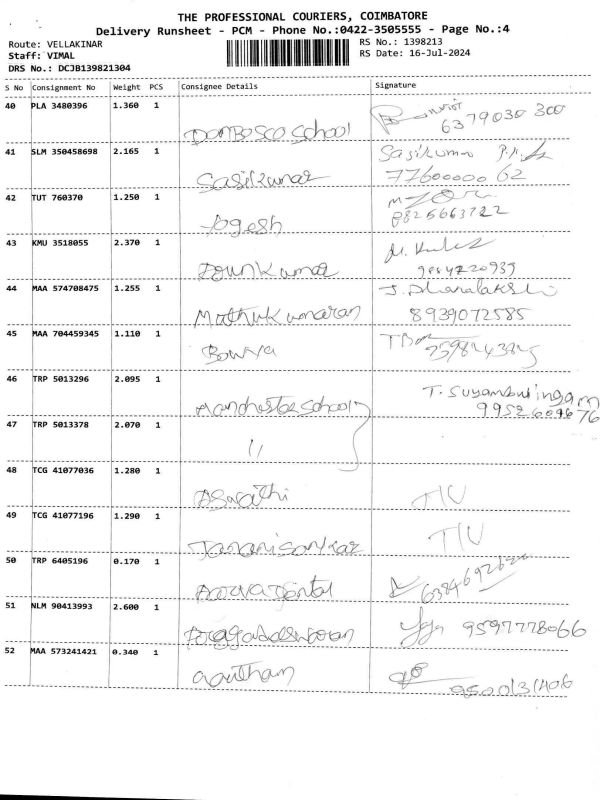 THE PROFESSIONAL COURIERS, COIMBATORE
Delivery Runsheet - PCM - Phone No.:0422-3505555 - Page No.:4
Route: VELLAKINAR
RS No.: 1398213
Staff: VIMAL
RS Date: 16-Jul-2024
DRS No.: DCJB139821304
S No Consignment No Weight PCS Consignee Details Signature
40 PLA 3480396 1.360 1
6379030 300
DonBosco School
41 SLM 350458698 2.165 1
Sasikumar
Sasikumar 7760000062
42 TUT 760370 1.250 1
8825663722
Yogesh
43 KMU 3518055 2.370 1
44 MAA 574708475 1.255 1
J. Dhanalakshi
Muthukumaran 8939072585
45 MAA 704459345 1.110 1
46 TRP 5013296 2.095 1
T. Suyambulingam
Manchester School 9952609676
47 TRP 5013378 2.070 1
"
48 TCG 41077036 1.280 1
Asvathi
49 TCG 41077196 1.290 1
Jananisankar
50 TRP 6405196 0.170 1
51 NLM 90413993 2.600 1
9597778066
52 MAA 573241421 0.340 1
Gautham
9500131406